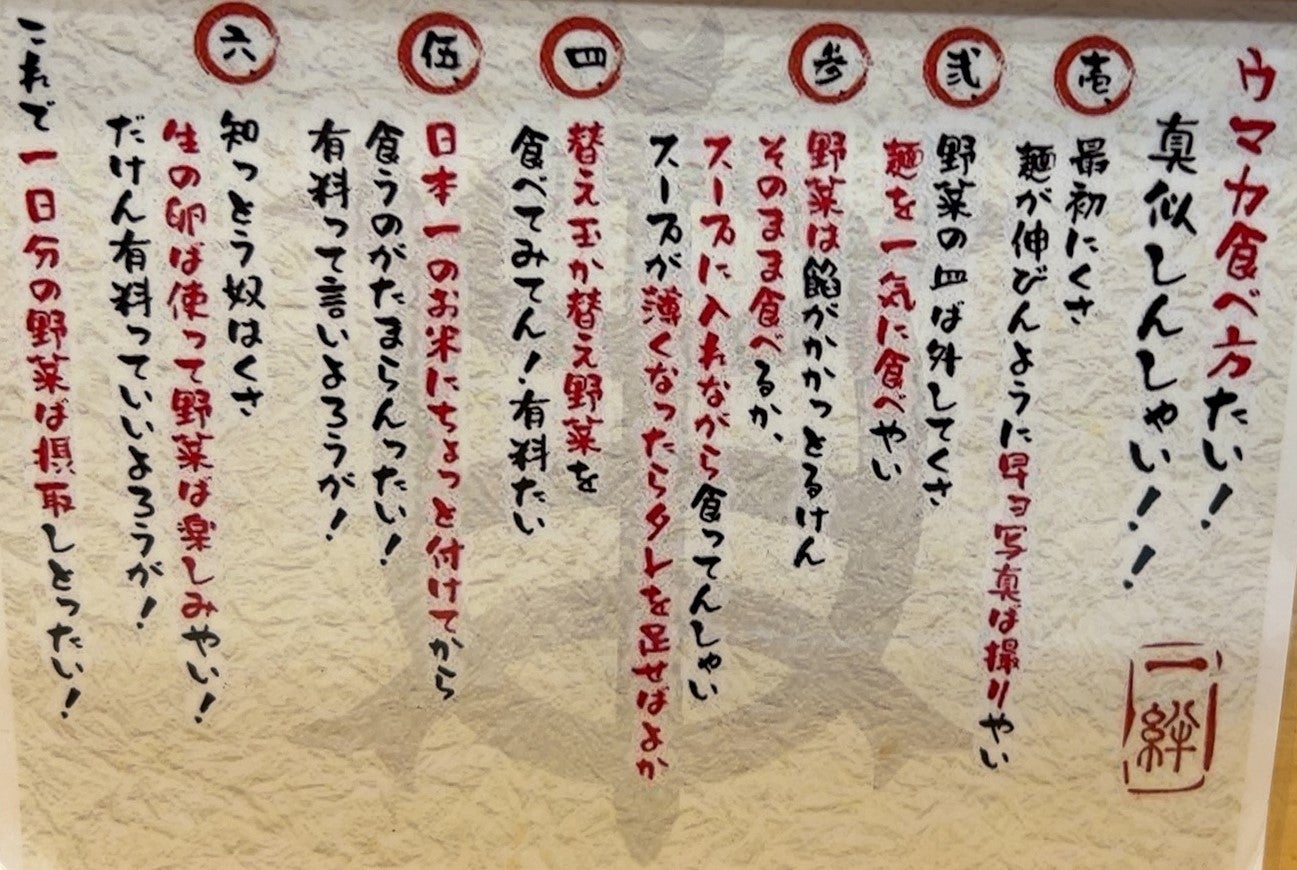 ウマカ食べ方たい！
真似しんしゃい！！
一絆
壱、
最初にくさ
麺が伸びんように早ヨ写真ば撮りやい
弐、
野菜の皿ば外してくさ
麺を一気に食べやい
参、
野菜は餡がかかっとるけん
そのまま食べるか、
スープに入れながら食ってんしゃい
スープが薄くなったらタレを足せばよか
四、
替え玉か替え野菜を
食べてみてん！有料たい
伍、
日本一のお米にちょっと付けてから
食うのがたまらんったい！
有料って言いよろうが！
六、
知っとう奴はくさ
生の卵ば使って野菜ば楽しみやい！
だけん有料っていいよろうが！
これで一日分の野菜ば摂取しとったい！